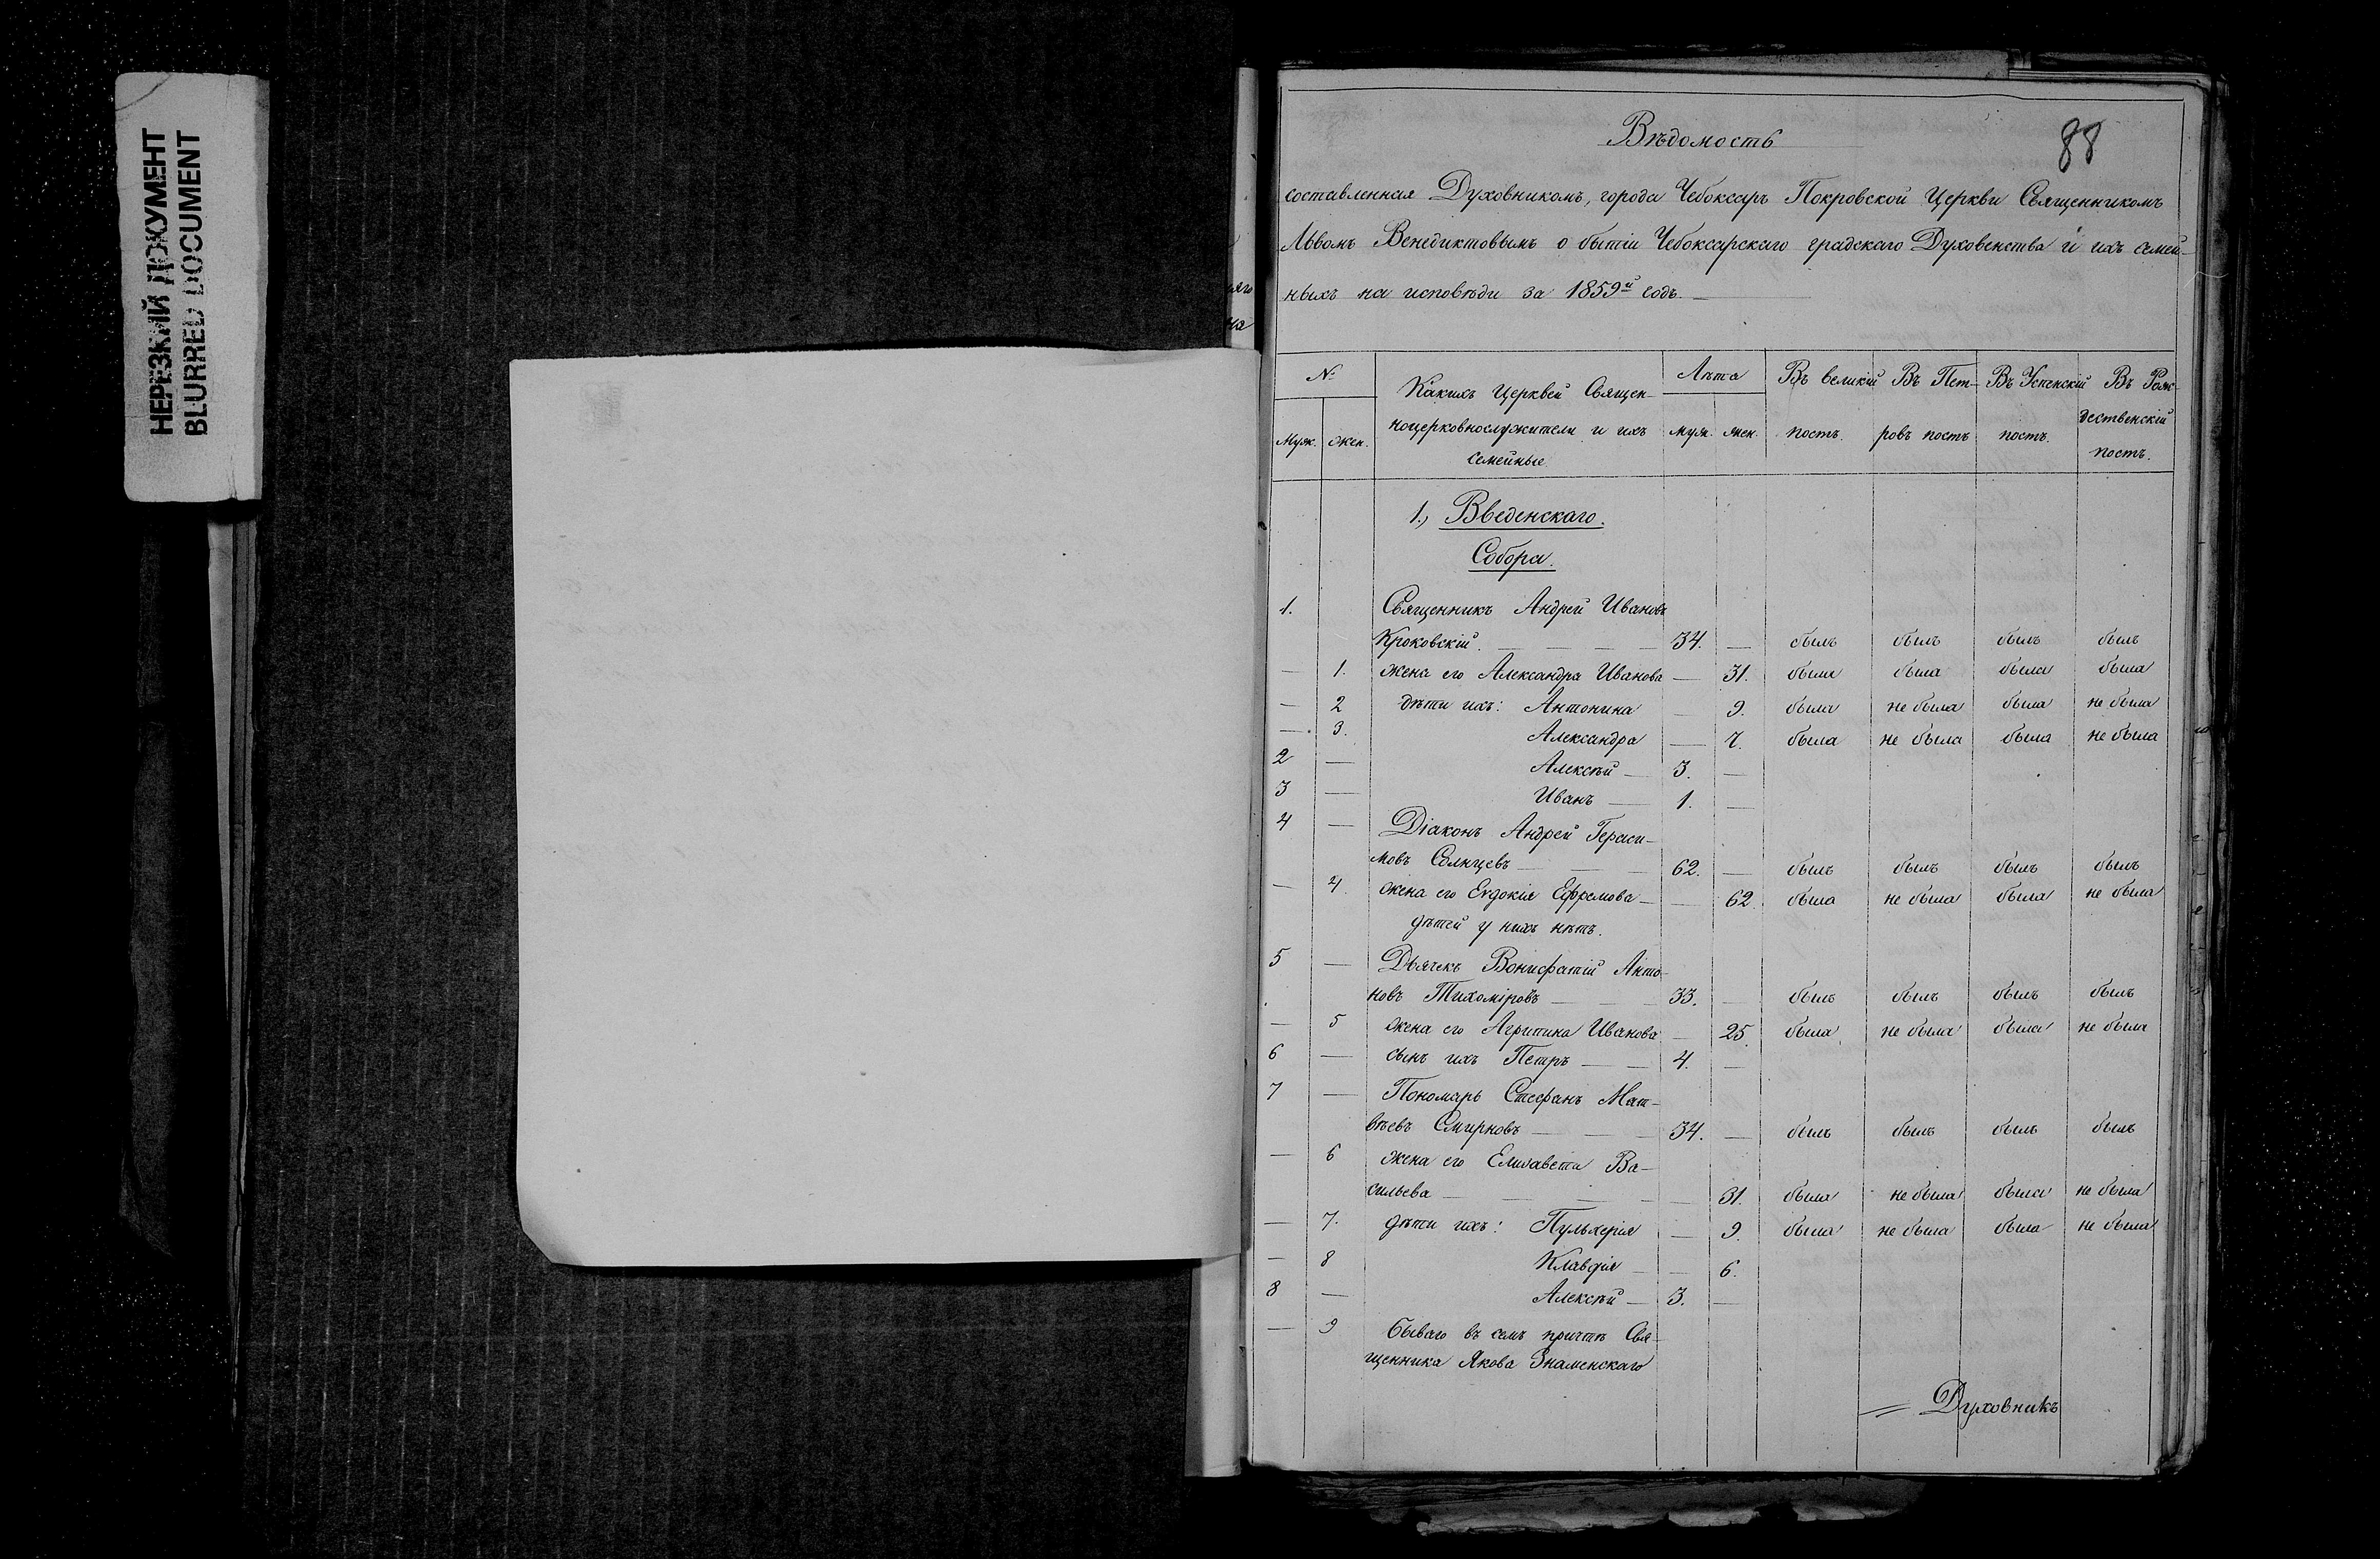 НЕРЕЗКИЙ ДОКУМЕНТ
BLURRED DOCUMENT
88
Вѣдомость
составленная Духовникомъ, города Чебоксаръ Покровской Церкви Священникомъ
Львомъ Венедиктовымъ о бытіи Чебоксарскаго градскаго Духовенства и ихъ семей-
ныхъ на исповѣди за 1859й годъ.
№ Какихъ Церквей Священ- Лѣта Въ великій Въ Пет- Въ Успенскій Въ Рож-
Муж. жен. ноцерковнослужители и ихъ муж. жен. постъ. ровъ постъ постъ. дественскій
семейные. постъ.
1., Введенскаго.
Собора.
1. Священникъ Андрей Ивановъ
Кроковскій. — 34. — былъ былъ былъ былъ
— 1. жена его Александра Иванова — 31. была была была была
— 2 дѣти ихъ: Антонина — 9. была не была была не была
— 3. Александра — 7. была не была была не была
2 — Алексѣй — 3. —
3 — Иванъ — 1. —
4 — Діаконъ Андрей Гераси-
мовъ Солнцевъ — 62. — былъ былъ былъ былъ
— 4. жена его Евдокія Ефремова — — 62. была не была была не была
дѣтей у нихъ нѣтъ.
5 — Дьячекъ Вонифатій Анто-
новъ Тихоміровъ — 33. — былъ былъ былъ былъ
— 5 жена его Агрипина Иванова — 25. была не была была не была
6 — сынъ ихъ Петръ — 4. —
7 — Пономарь Стефанъ Мат-
вѣевъ Смирновъ — 34. — былъ былъ былъ былъ
— 6 жена его Елизавета Ва-
сильева — — 31. была не была была не была
— 7. дѣти ихъ: Пульхерія — 9. была не была была не была
— 8 Клавдія — — 6.
8 — Алексѣй — 3. —
— 9 бываго въ семъ причтѣ Свя-
щенника Якова Знаменскаго
Духовникъ